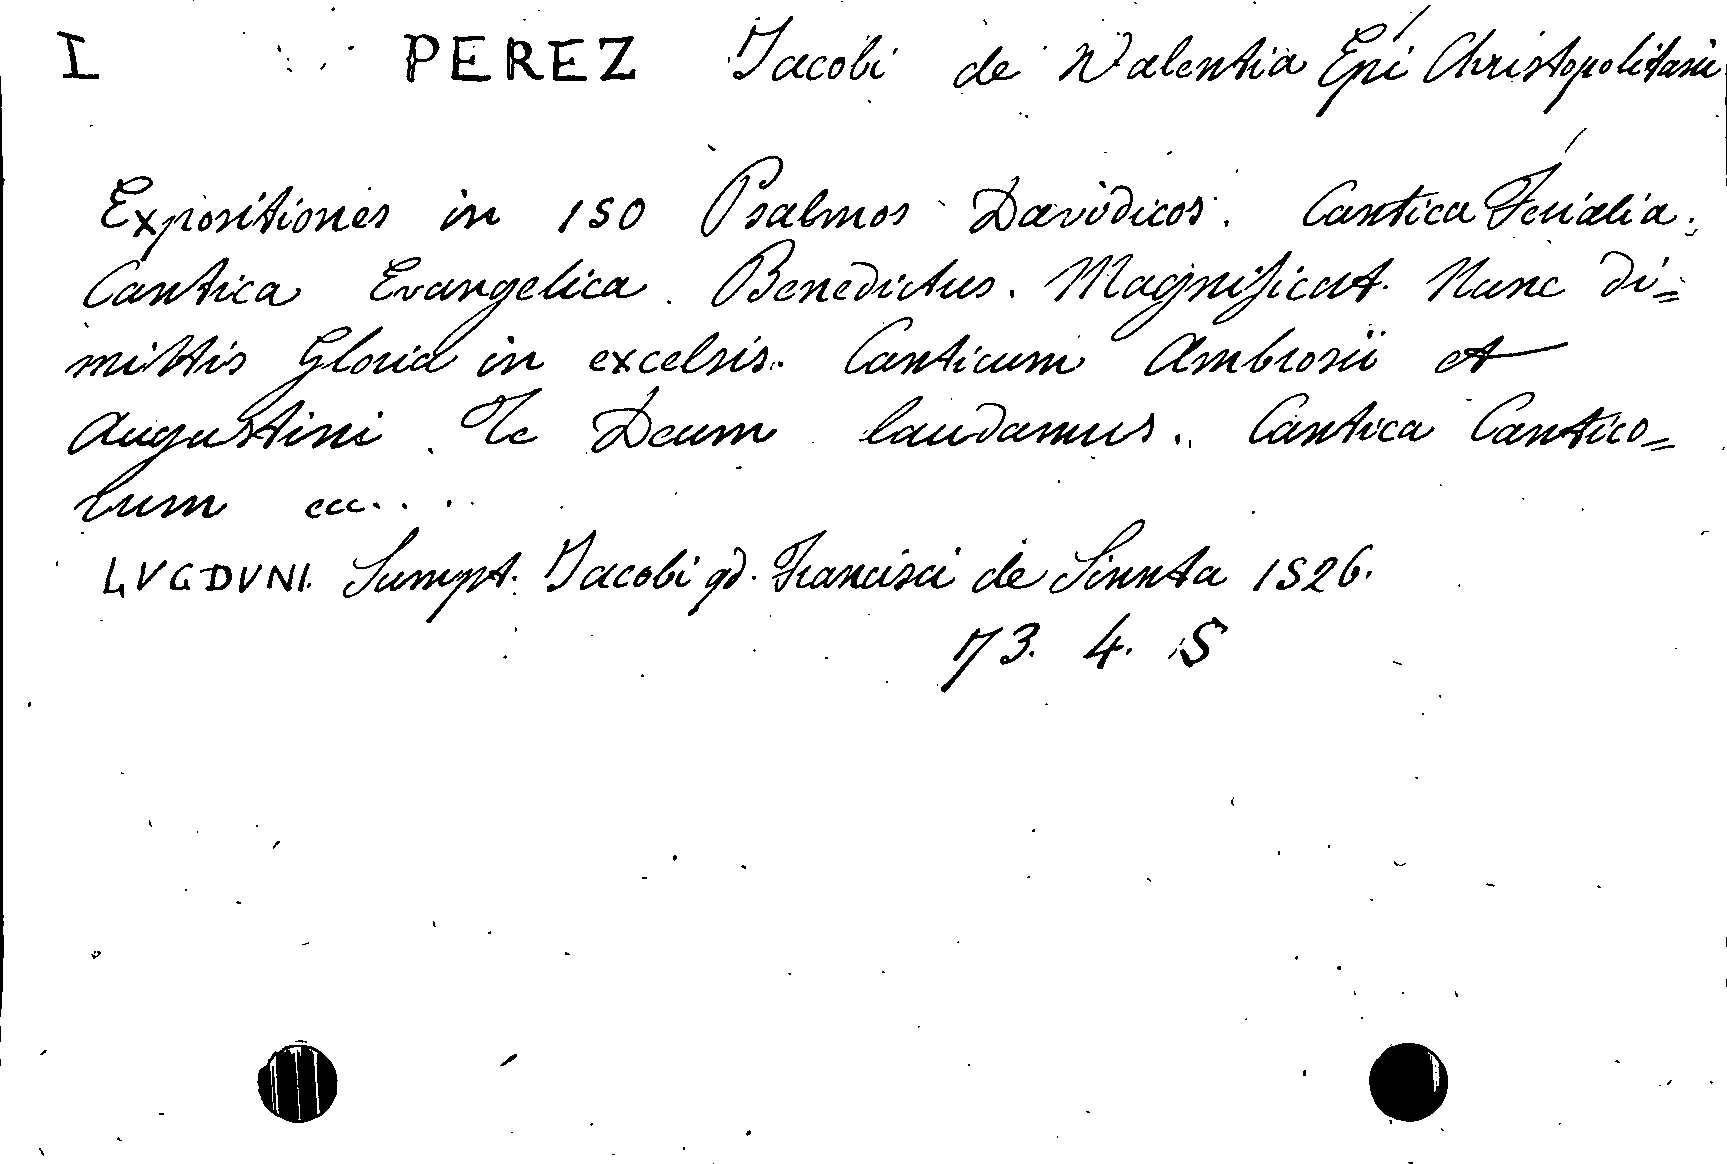 I PEREZ Jacobi de Valentia Epi Christopolitani
Expositiones in 150 Psalmos Davidicos. Cantica Ferialia.
Cantica Evangelica. Benedictus. Magnificat. Nunc di=
mittis Gloria in excelsis. Canticum Ambrosii et
Augustini. Te Deum laudamus. Cantica Cantico=
rum ecc....
LVGDVNI. Sumpt. Jacobi qd. Francisci de Siunta 1526.
73. 4. S